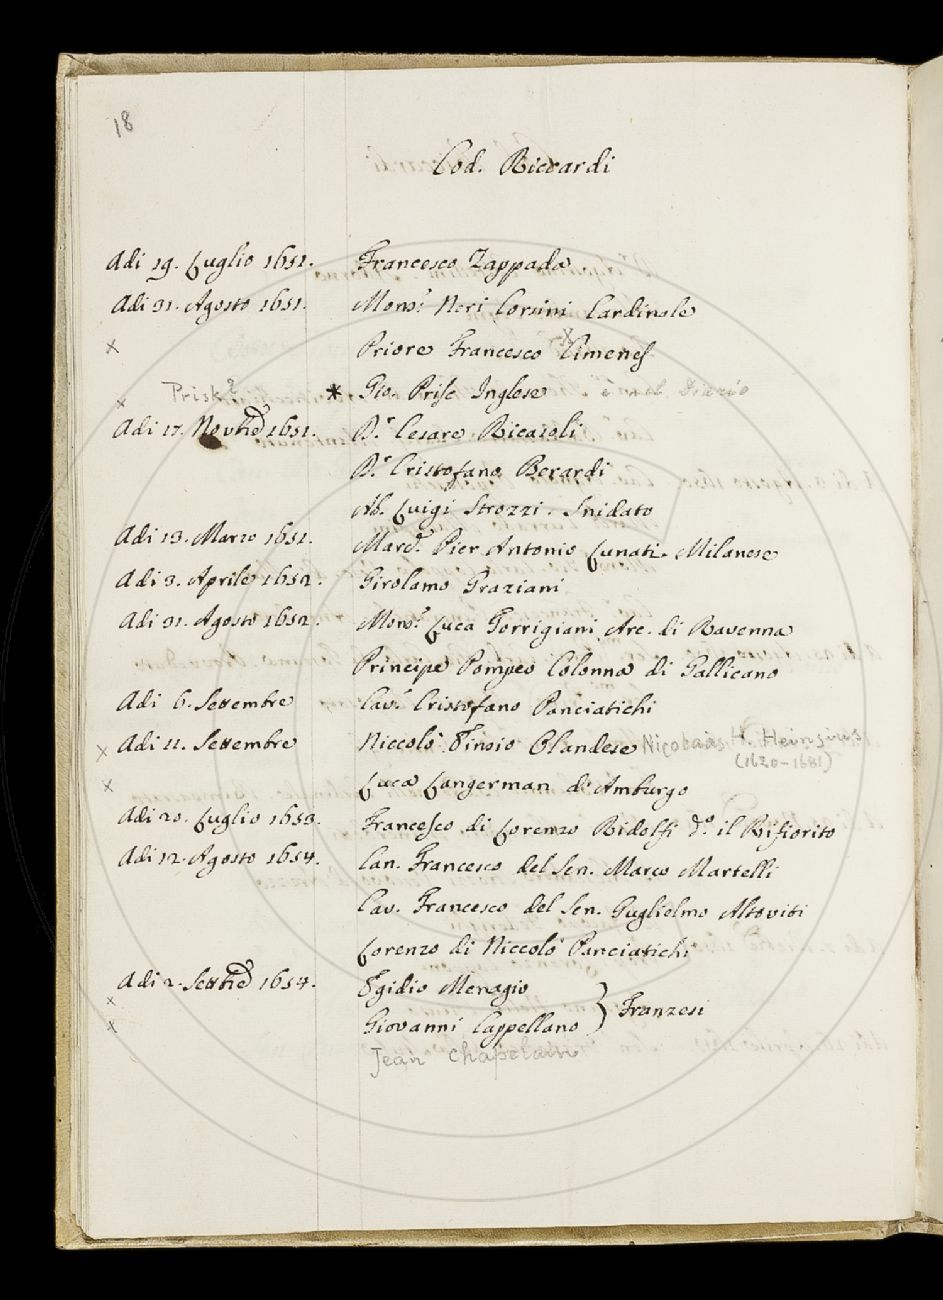 18
Cod. Riccardi
Adi 19. Luglio 1651. Francesco Zappada
Adi 31. Agosto 1651. Monsr. Neri Corsini Cardinale
x Priore Francesco Ximenes
x Prisk? * Gio. Prise Inglese è nel Diario
Adi 17. Novbre 1651. Dr. Cesare Ricasoli
Dr. Cristofano Berardi
Ab. Luigi Strozzi. Snidato
Adi 13. Marzo 1651. Marce. Pier Antonio Lunati Milanese
Adi 3. Aprile 1652. Girolamo Graziani
Adi 31. Agosto 1652. Monsr. Luca Torrigiani Arc. di Ravenna
Principe Pompeo Colonna di Gallicano
Adi 6. Settembre Cavr. Cristofano Panciatichi
x Adi 11. Settembre Niccolò Einsio Olandese Nicolaas H. Heinsius
(1620-1681)
x Luca Langerman d'Amburgo
Adi 20. Luglio 1653. Francesco di Lorenzo Ridolfi do. il Rifiorito
Adi 12. Agosto 1654. Can. Francesco del Sen. Marco Martelli
Cav. Francesco del Sen. Guglielmo Altoviti
Lorenzo di Niccolò Panciatichi
Adi 2. Settbre 1654. Egidio Menagio
x Giovanni Cappellano } Franzesi
x Jean Chapelain